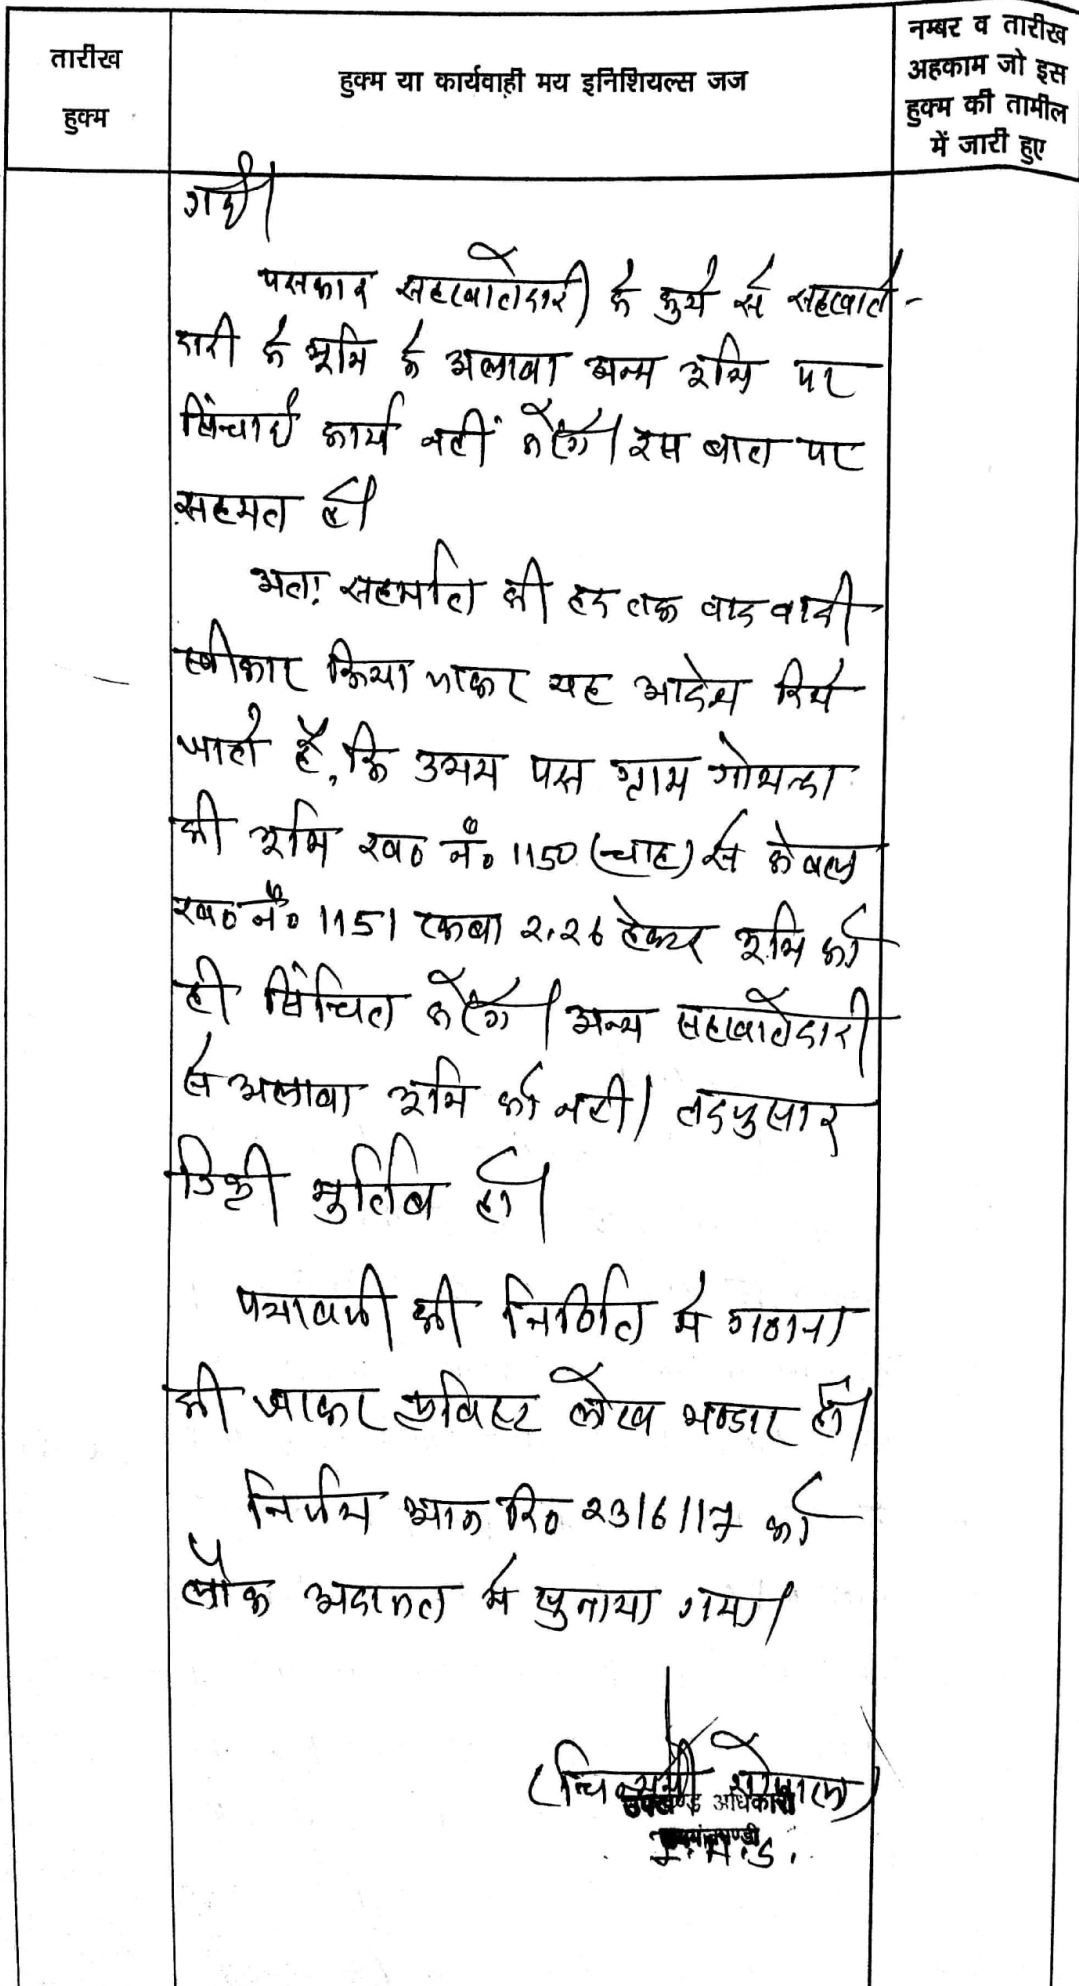 तारीख
हुक्म
हुक्म या कार्यवाही मय इनिशियल्स जज
नम्बर व तारीख
अहकाम जो इस
हुक्म की तामील
में जारी हुए
गयी।
पक्षकार सहखातेदारी के कुयें से सहखाते-
दारी के भूमि के अलावा अन्य भूमि पर
सिंचाई कार्य नहीं करेंगे। इस बात पर
सहमत हैं।
अतः सहमति की हद तक वाद वादी
स्वीकार किया जाकर यह आदेश दिये
जाते हैं, कि उभय पक्ष ग्राम गोयन्दा
की भूमि ख० नं० 1150 (चाह) से केवल
ख० नं० 1151 रकबा 2.26 हेक्टर भूमि को
ही सिंचित करेंगे। अन्य सहखातेदारी
से अलावा भूमि को नहीं। तदनुसार
डिक्री मुर्तिब हो।
पत्रावली की निर्णित में गणना
की जाकर प्रविष्ट लेख भण्डार हो।
निर्णय आज दि० 23/6/17 को
लोक अदालत में सुनाया गया।
उपखण्ड अधिकारी